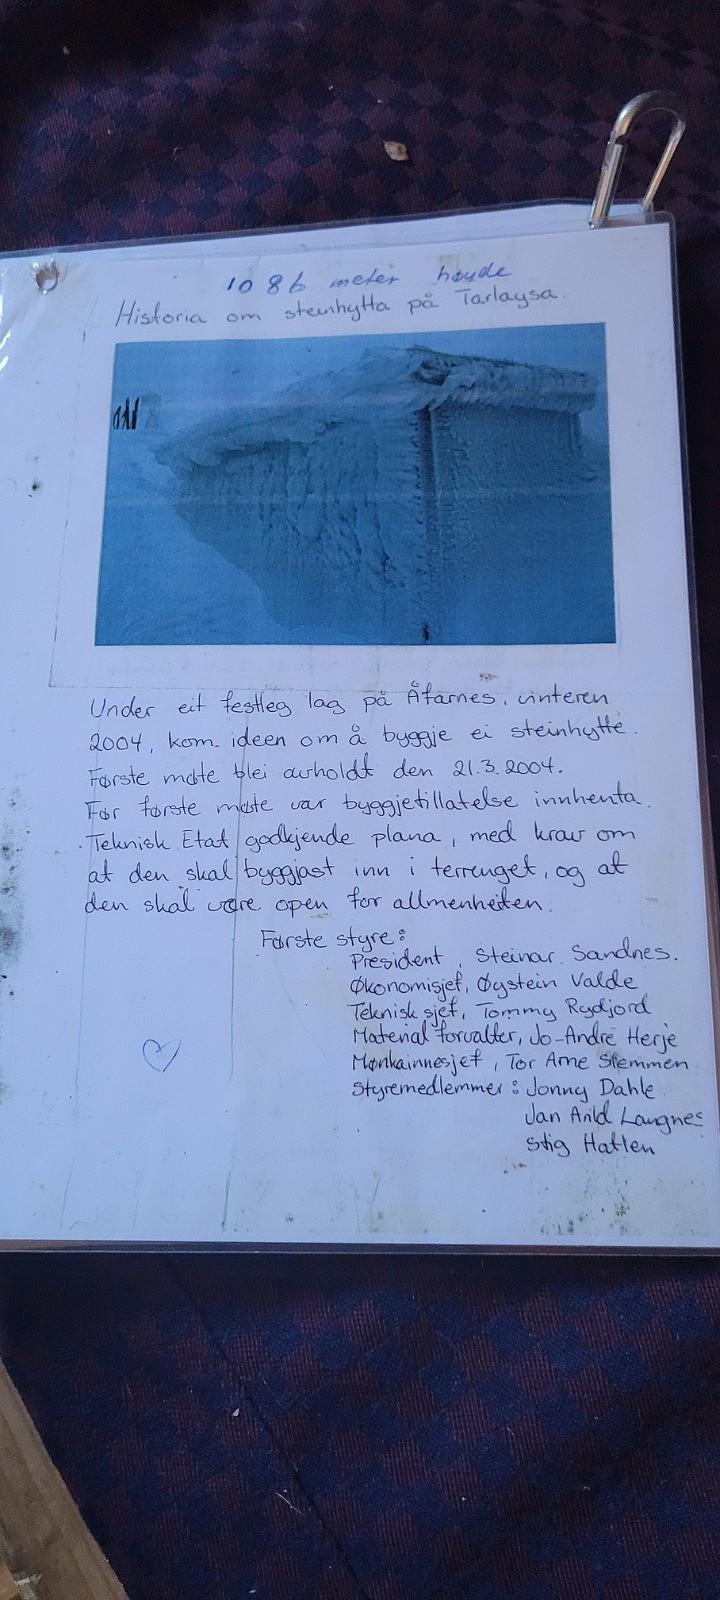 1086 meter høyde
Historia om steinhytta på Tarløysa.
Under eit festleg lag på Åfarnes, vinteren
2004, kom ideen om å byggje ei steinhytte.
Første møte blei avholdt den 21.3.2004.
Før første møte var byggjetillatelse innhenta.
Teknisk Etat godkjende plana, med krav om
at den skal byggjast inn i terrenget, og at
den skal være open for allmenheiten.
Første styre:
President, Steinar Sandnes.
Økonomisjef, Øystein Valde
Teknisk sjef, Tommy Rydjord
Material forvalter, Jo-Andre Herje
Mønkainnesjef, Tor Arne Slemmen
Styremedlemmer: Jonny Dahle
Jan Arild Langnes
Stig Hatlen